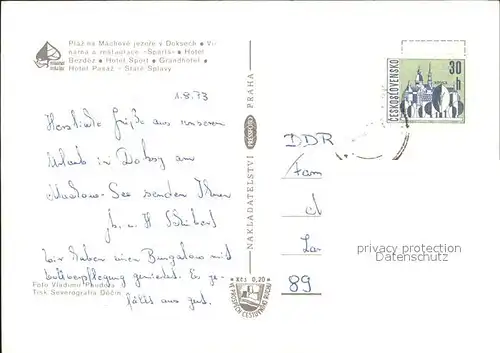 Pláž na Máchově jezeře v Doksech • Vi-
nárna a restaurace »Sparta« • Hotel
Bezděz • Hotel Sport • Grandhotel •
Hotel Pasáž - Staré Splavy
1.8.73
Herzliche Grüße aus unseren
Urlaub in Doksy am
Machowo-See senden Ihnen
H. Schubert
Wir haben einen Bungalow mit
Vollverpflegung gemietet. Es ge-
fällt uns gut.
Foto Vladimír
Tisk Severografia Děčín
NAKLADATELSTVÍ PRESSFOTO PRAHA
Kčs 0,20
VE PROSPĚCH CESTOVNÍHO RUCHU
ČESKOSLOVENSKO
30
h
DDR
Fam
d
La-
89
privacy protection
Datenschutz